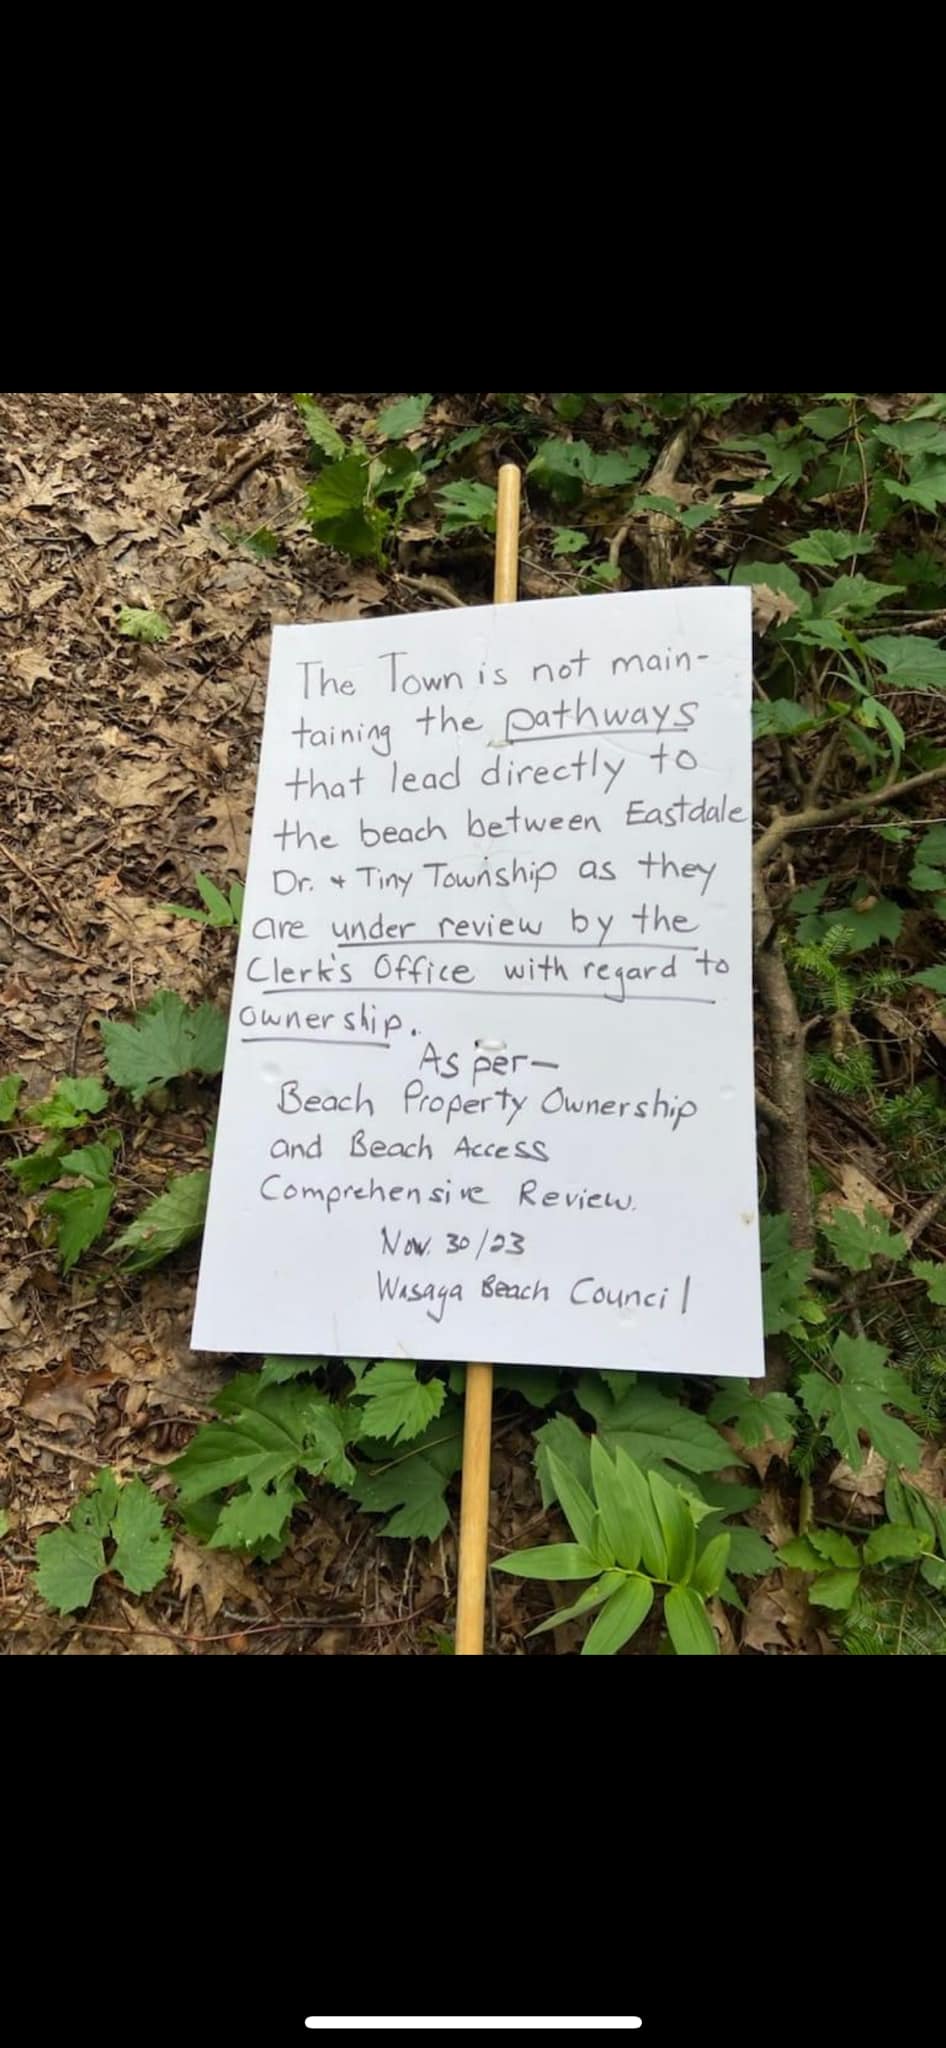 The Town is not main-
taining the pathways
that lead directly to
the beach between Eastdale
Dr. + Tiny Township as they
are under review by the
Clerk's Office with regard to
ownership.
As per-
Beach Property Ownership
and Beach Access
Comprehensive Review.
Nov. 30/23
Wasaga Beach Council